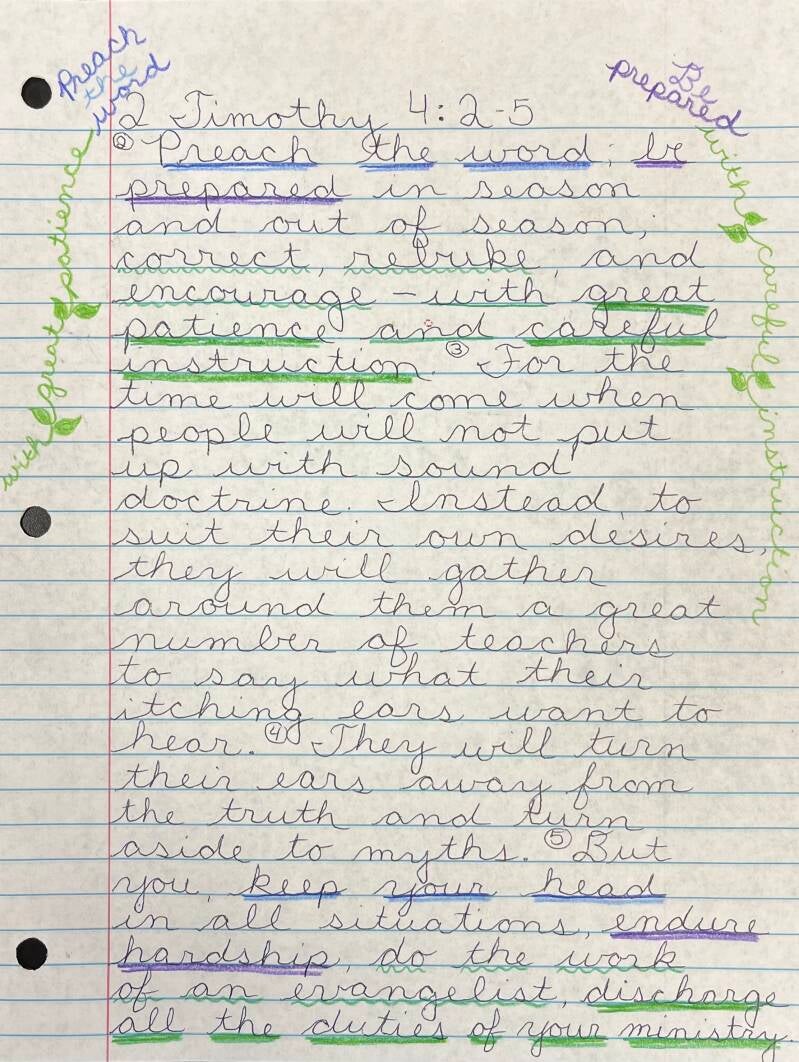 Preach
the
word
Be
prepared
2 Timothy 4:2-5
② Preach the word; be
prepared in season
and out of season;
correct, rebuke, and
encourage – with great
patience and careful
instruction. ③ For the
time will come when
people will not put
up with sound
doctrine. Instead, to
suit their own desires,
they will gather
around them a great
number of teachers
to say what their
itching ears want to
hear. ④ They will turn
their ears away from
the truth and turn
aside to myths. ⑤ But
you, keep your head
in all situations, endure
hardship, do the work
of an evangelist, discharge
all the duties of your ministry.
with great patience
with careful instruction